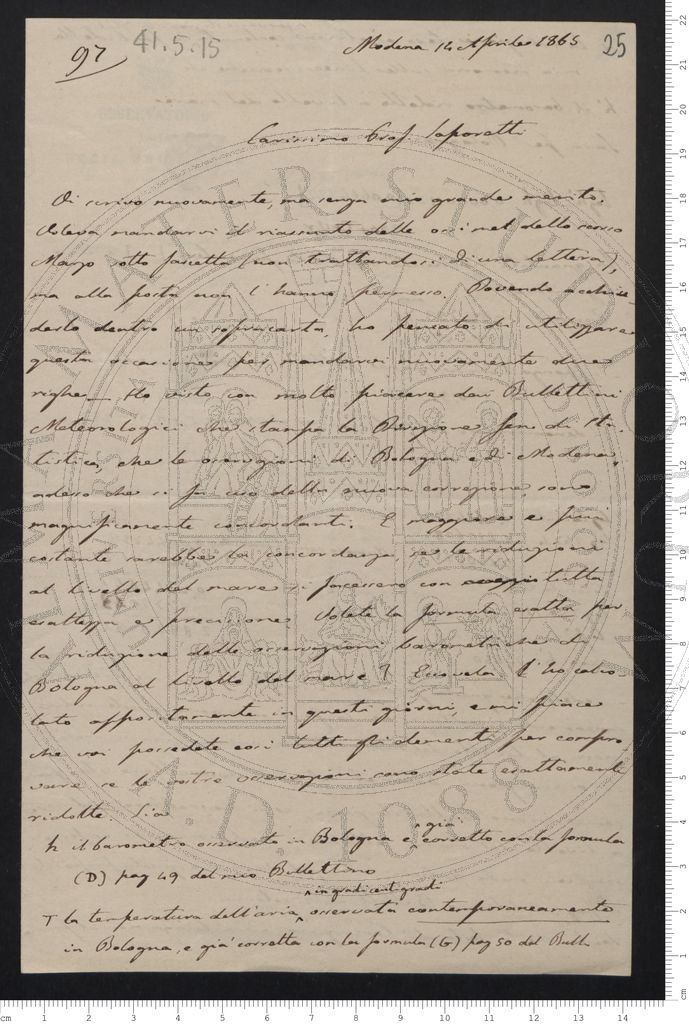 97
41.5.15
Modena 14 Aprile 1865
25
Carissimo Prof Saporetti
Vi scrivo nuovamente, ma senza mio grande merito.
Voleva mandarvi il riassunto delle oss.i met. dello scorso
Marzo sotto fascetta (non trattandosi di una lettera),
ma alla posta non l'hanno permesso. Dovendo acchiu-
derlo dentro un sopracarta, ho pensato di utilizzare
questa occasione per mandarvi nuovamente due
righe — Ho visto con molto piacere dai Bullettini
Meteorologici che stampa la Direzione Gen di Sta-
tistica, che le osservazioni di Bologna e di Modena,
adesso che si fa uso della nuova correzione, sono
magnificamente concordanti. E maggiore e più
costante sarebbe la concordanza, se le riduzioni
al livello del mare si facessero con tutta
esattezza e precisione. Volete la formula esatta per
la riduzione delle osservazioni barometriche di
Bologna al livello del mare? Eccovela. L'ho calco-
lata appositamente in questi giorni, e mi piace
che voi possedete così tutti gli elementi per compro-
vare se le vostre osservazioni sono state esattamente
ridotte. Sia
h il barometro osservato in Bologna e già corretto con la formula
(D) pag 49 del mio Bullettino
T la temperatura dell'aria in gradi centigradi osservata contemporaneamente
in Bologna, e già corretta con la formula (G) pag 50 del Bull.
ALMA MATER STUDIORUM
A.D. 1088
cm 1 2 3 4 5 6 7 8 9 10 11 12 13 14
cm 1 2 3 4 5 6 7 8 9 10 11 12 13 14 15 16 17 18 19 20 21 22